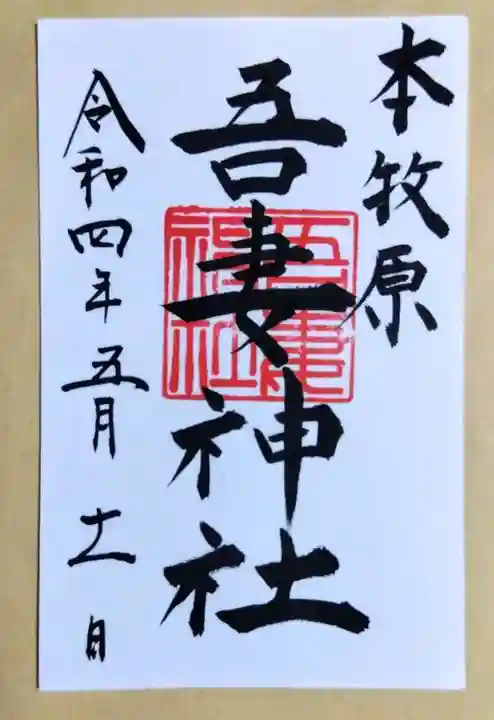 本牧原
吾妻神社
吾妻神社
令和四年五月十一日